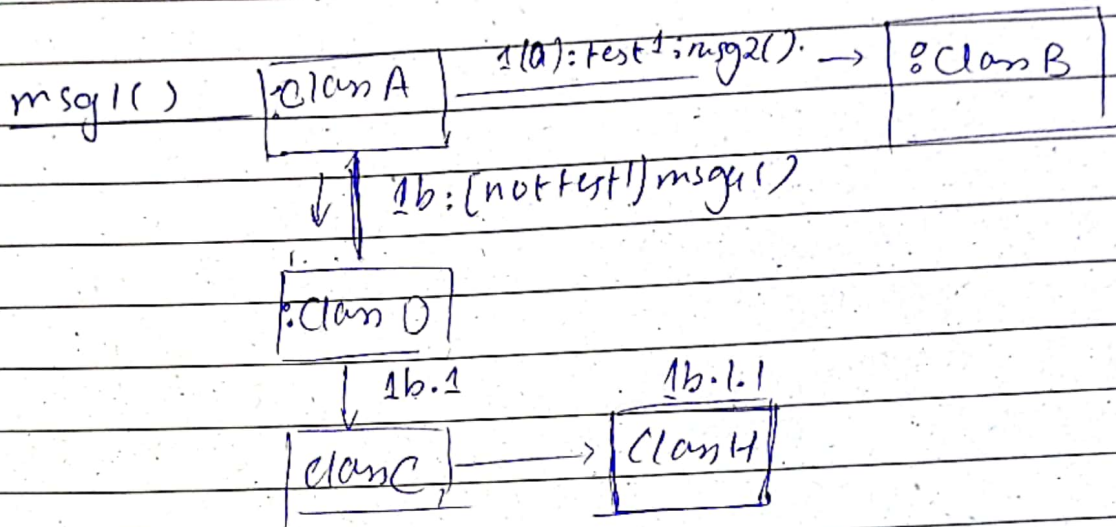 msg1() :ClassA 1(a):test1:msg2(). → :ClassB
1b:[not test1] msg4()
:Class D
1b.1 1b.1.1
classC ClassH